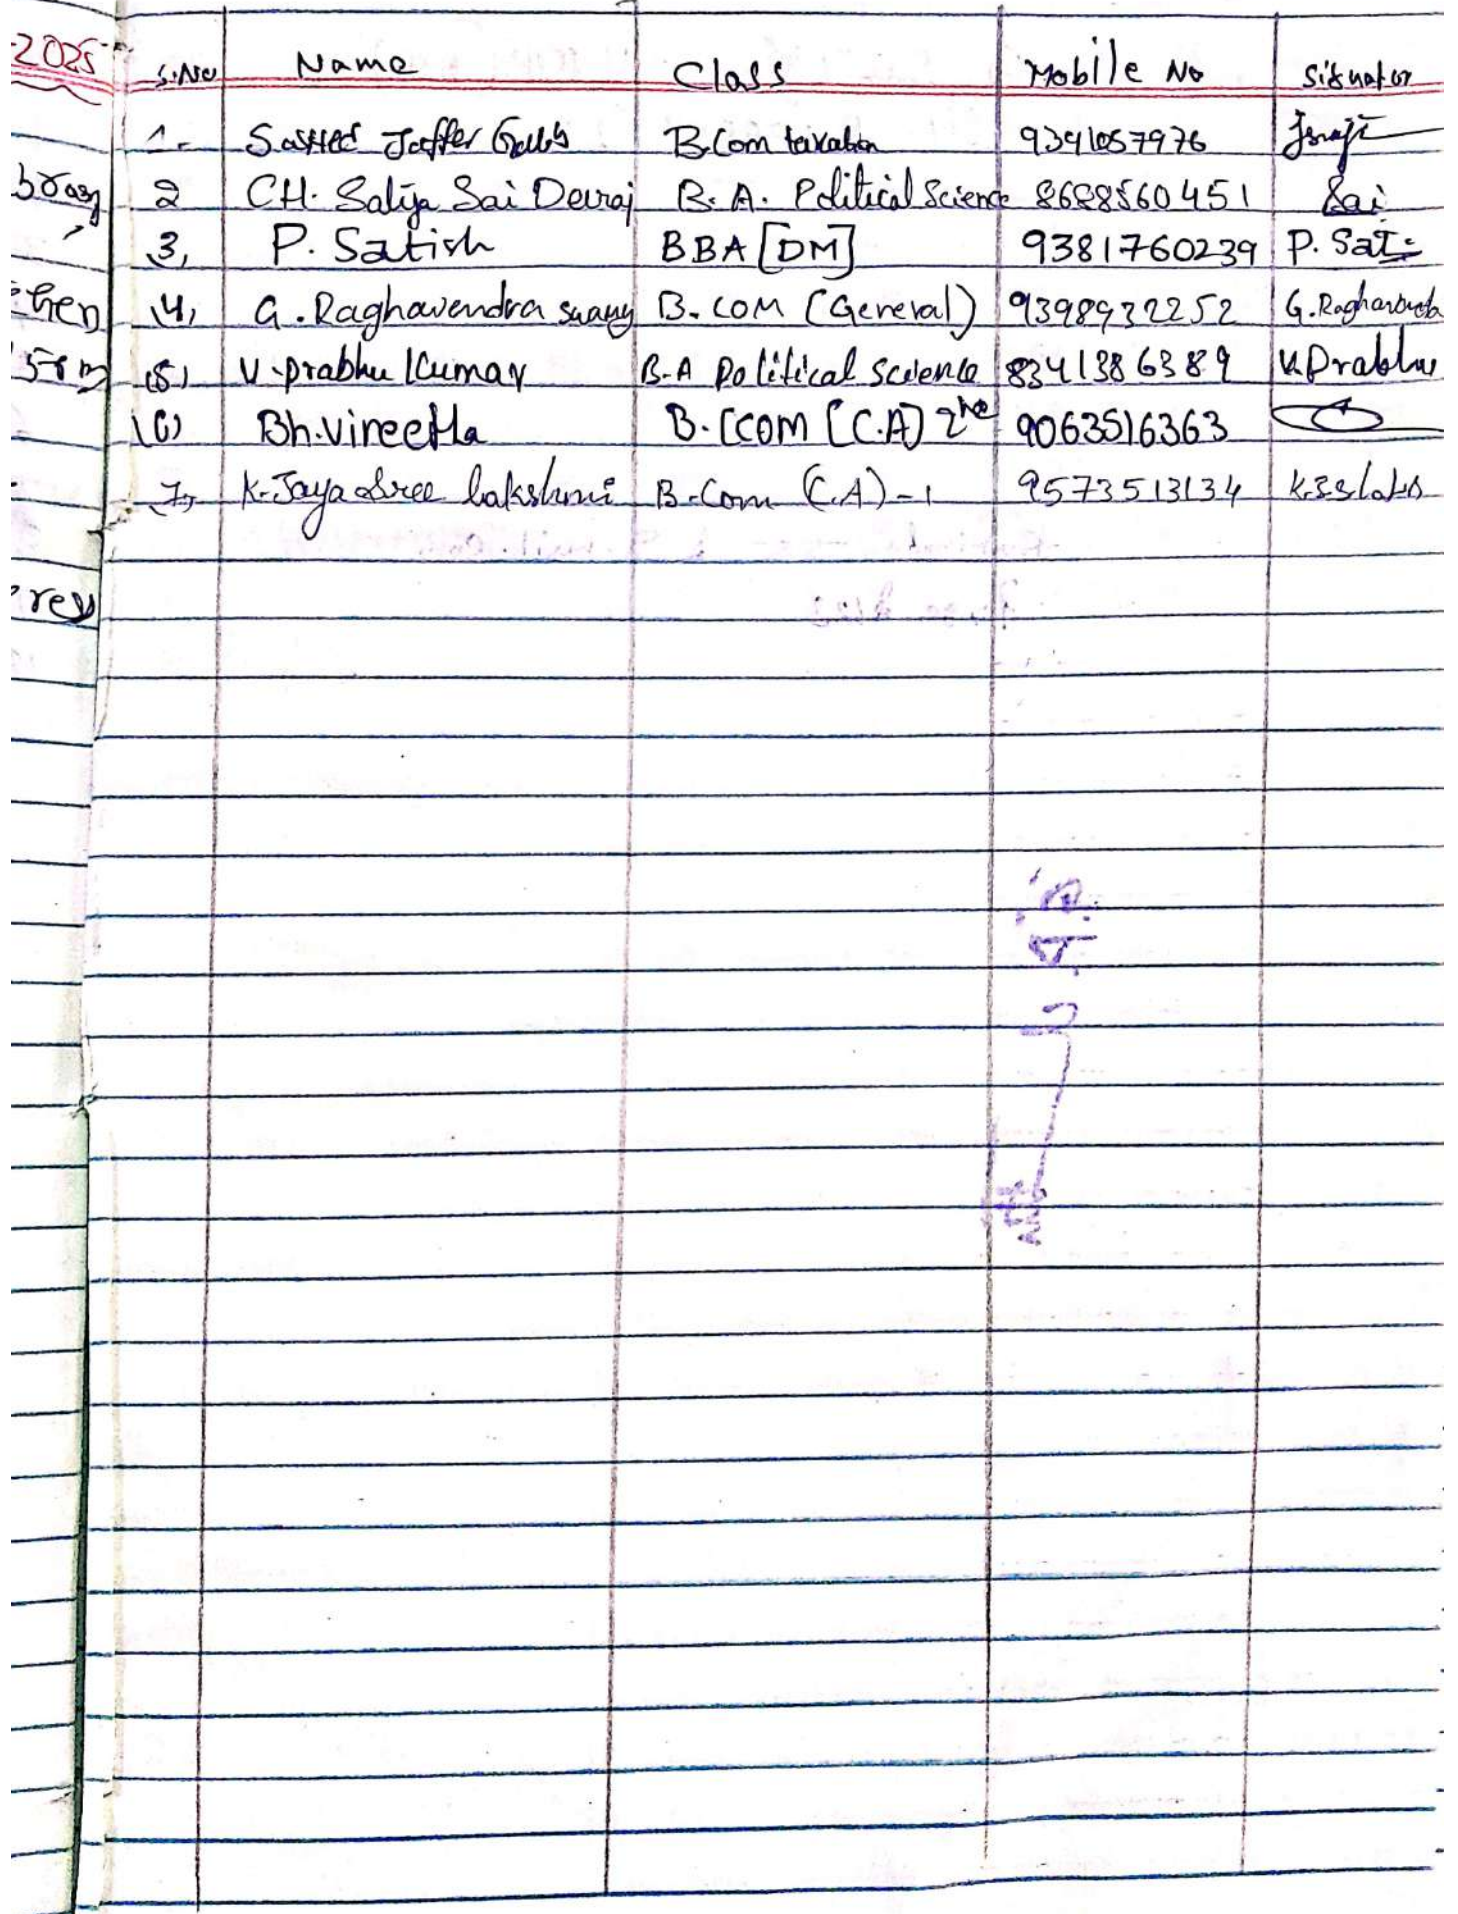 2025
S.No Name Class Mobile No Signator
1. Jaffer B.Com taxation 9391057976
2 CH. Satya Sai Devraj B.A. Political Science 8688560451 Sai
3, P. Satish BBA [DM] 9381760239 P. Sati
(4) G. Raghavendra swamy B.COM (General) 9398932252 G. Raghavendra
(5) V. Prabhu Kumar B.A Political Science 8341386389 V. Prabhu
(6) Bh. Vineetha B.CCOM [C.A] 2 9063516363
7, K. Jaya Sree lakshmi B.Com (C.A) - 1 9573513134